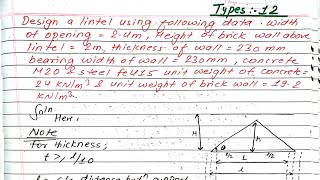 Types:-12
Design a lintel using following data. width
of opening = 2.4m, Height of brick wall above
lintel = 2m, thickness of wall = 230 mm
bearing width of wall = 230mm, concrete
M20 & steel fe415 unit weight of concrete=
24 kN/m³ & unit weight of brick wall = 19.2
kN/m³.
Soln
Here,
Note
For thickness;
t >, l/10
H
h
l/2 L l/2
l